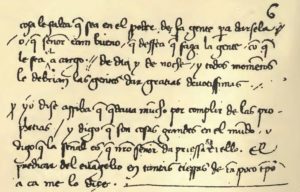 6
cosa le falta que sea en el poder de la gente para dársela
o, que señor tan bueno, que dessea que faga la gente co que
le sea a cargo: de dia y de noche y todos momentos
le debrian las gentes dar gracias devotissimas
yo dixe arriba que quedava mucho por complir de las pro
phetias, y digo que son cosas grandes en el mundo, y
digo que la señal es que nro señor da priessa en ello. El
predicar del evangelio en tantas tierras de tan poco tpo
a ca me lo dize